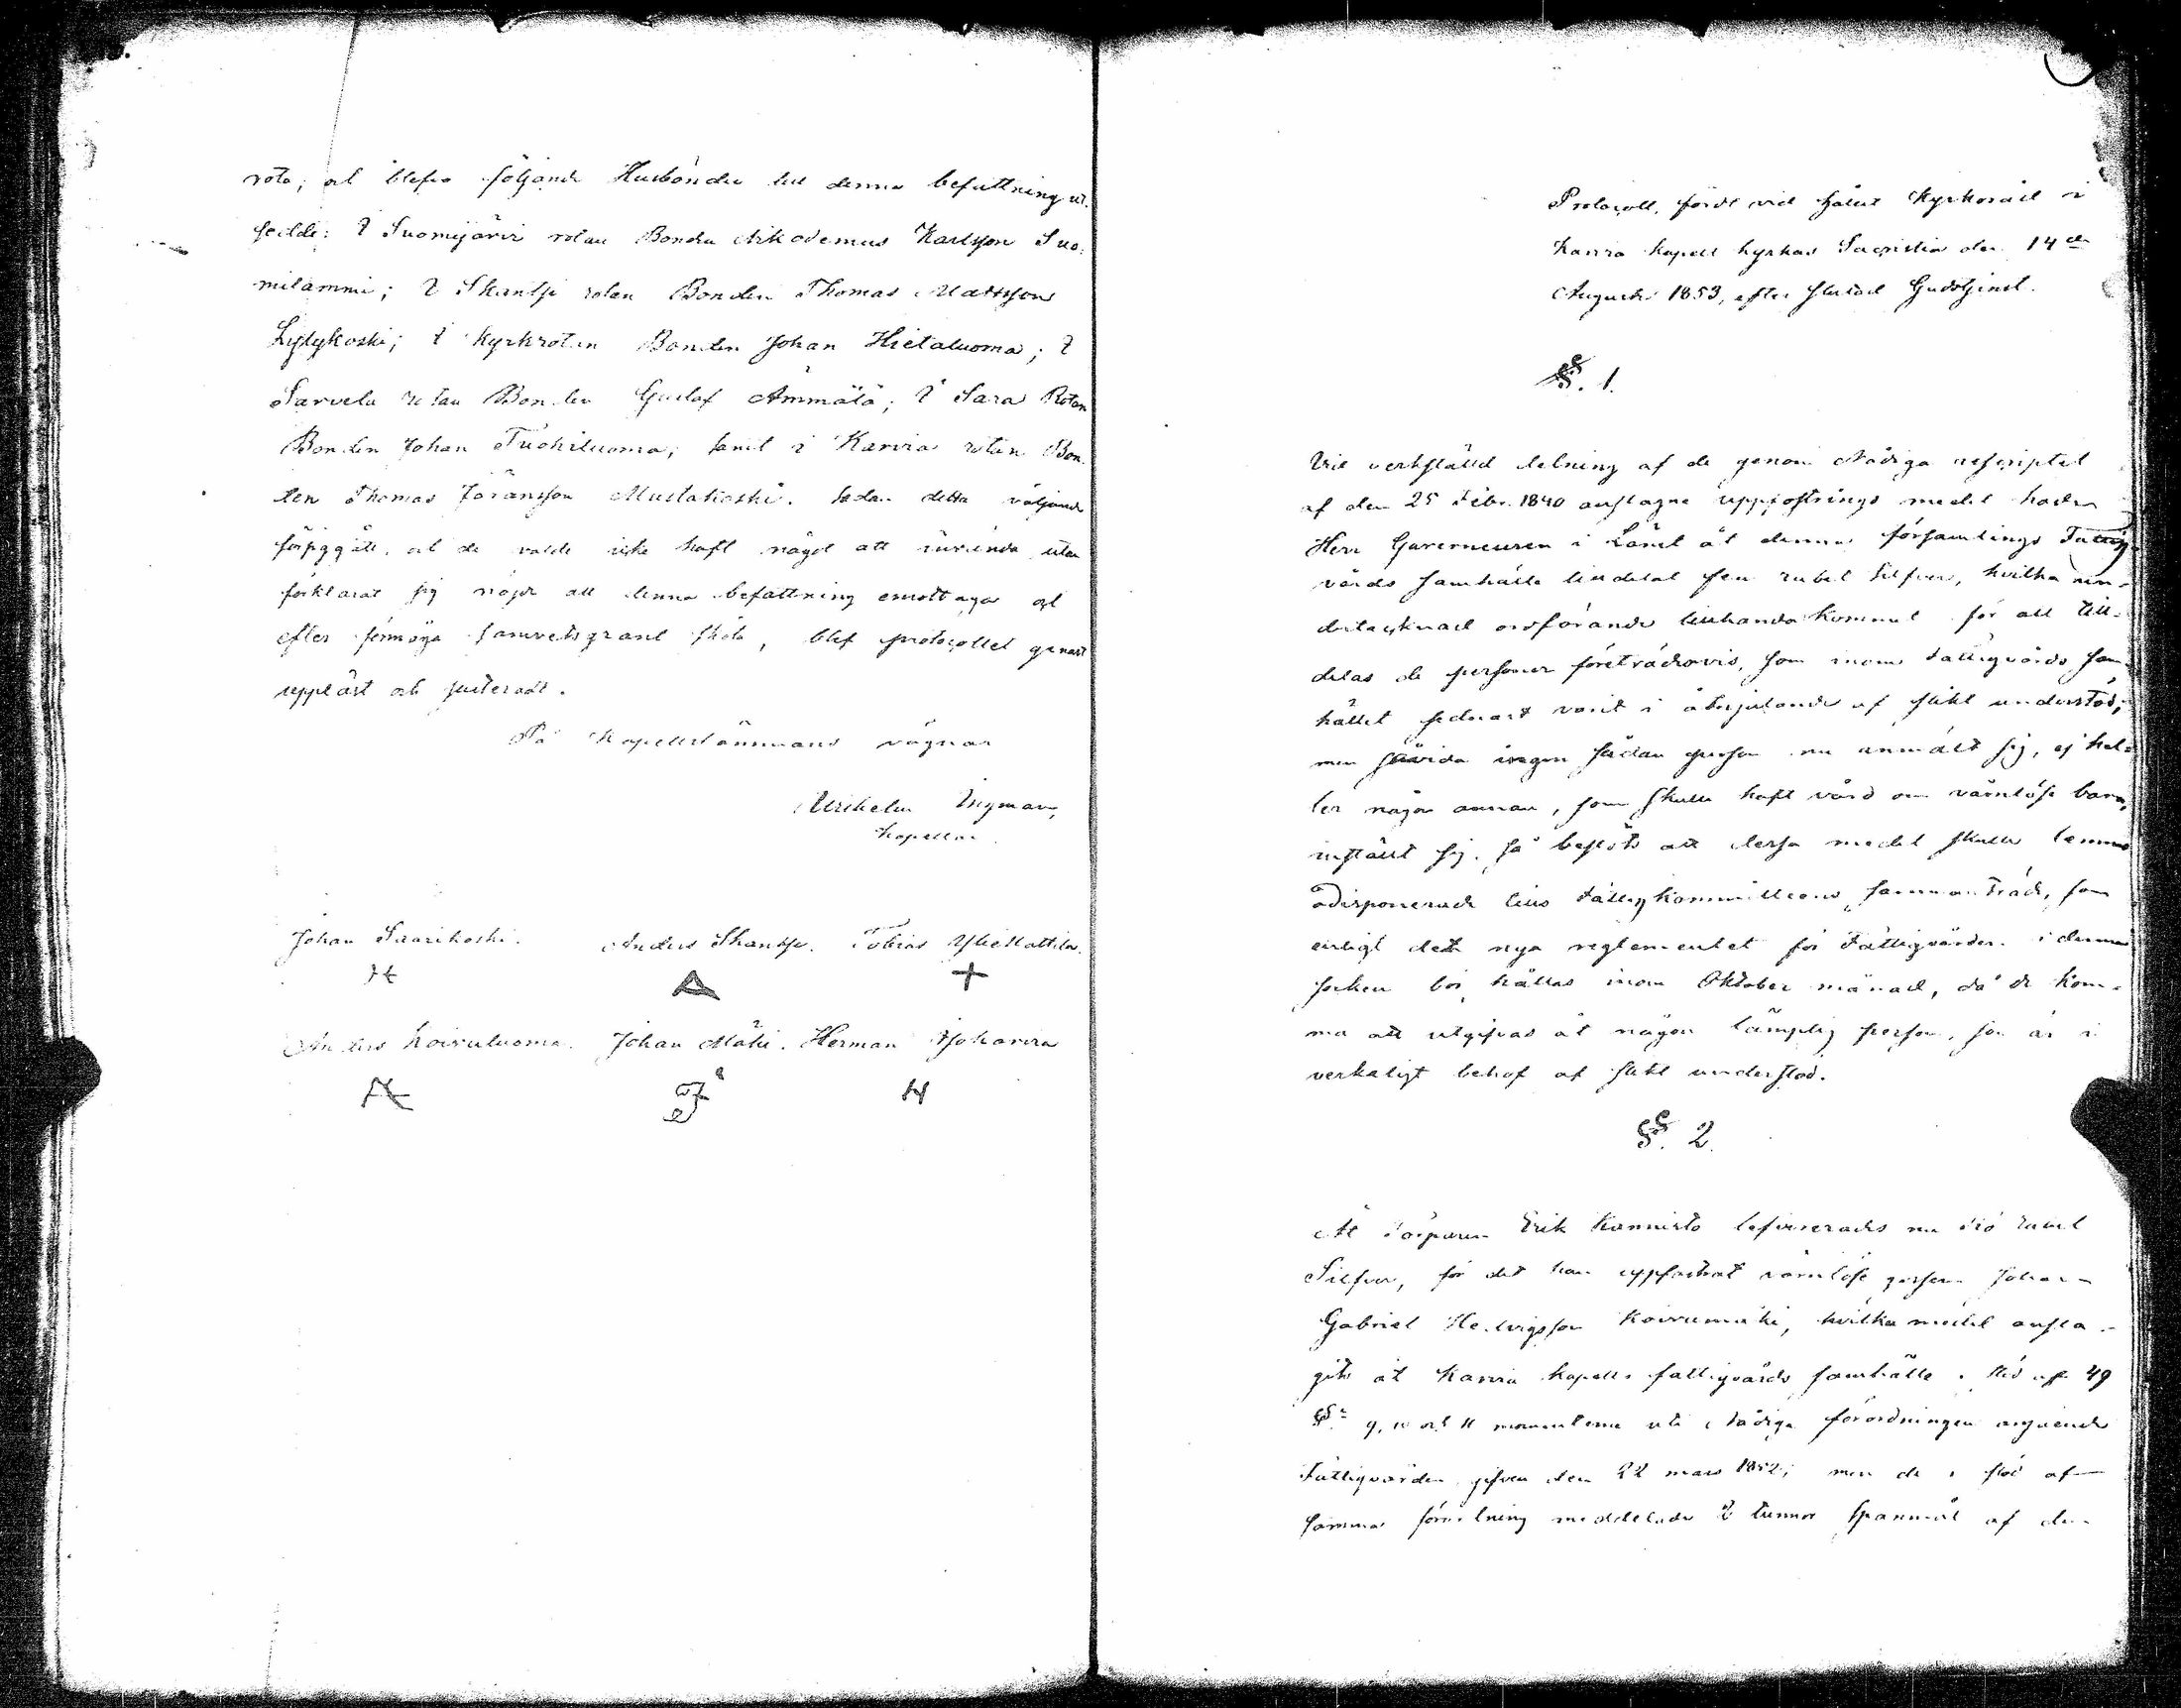 rota; och blefvo följande Husbönder till denna befattning ut-
sedde: I Suomijärvi rotan Bonden Nikodemus Karlsson Suo-
milammi; I Skantsi rotan Bonden Thomas Mattsson
Lylykoski; I Kyrkrotan Bonden Johan Hietaluoma; I
Sarvela rotan Bonden Gustaf Ämmälä; I Sara Rotan
Bonden Johan Tuohiluoma; samt i Karvia rotan Bon-
den Thomas Jöransson Mustakoski. Sedan detta väljande
försiggått, och de valde icke haft något att invända utan
förklarat sig nöjde att denna befattning emottaga och
efter förmåga samvetsgrant sköta, blef protocollet genast
uppläst och justeradt.
På Kapellstämmans vägnar
Wilhelm Ingman,
Kapellan.
Johan Saarikoski. Anders Skantsi. Tobias Ylikattila.
H A +
Anders Koivuluoma. Johan Mäki. Herman Ahokarvia
A H
Protocoll, fördt vid hållit Kyrkoråd i
Karvia Kapell kyrkas Sacristia den 14de
Augusti 1853, efter slutad Gudstjenst.
§. 1.
Vid verkställd delning af de genom Nådiga rescriptet
af den 25 Febr. 1840 anslagne uppfostrings medel hade
Herr Gouverneuren i Länet åt denna församlings Fattig-
vårds samhälle tilldelat fem rubel Silfver, hvilka un-
dertecknad ordförande tillhanda kommit för att till-
delas de personer företrädesvis, som inom Fattigvårds sam-
hället sednast varit i åtnjutande af slikt understöd;
men såvida ingen sådan person nu anmält sig, ej hel-
ler någon annan, som skulle haft vård om värnlöse barn,
inställt sig. Så beslöts att dessa medel skulle lemnas
odisponerade tills Fattigkommitteens sammanträde, som
enligt det nya reglementet för Fattigvården i denna
socken bör hållas inom Oktober månad, då de kom-
ma att utgifvas åt någon lämplig person, som är i
verkeligt behof af slikt understöd.
§. 2.
Åt Torparen Erik Kannisto lefvererades nu tio rubel
Silfver, för det han uppfostrat värnlöse gossen Johan
Gabriel Hedvigsson Koivumäki, hvilka medel ansla-
gits åt Karvia Kapells fattigvårds samhälle i stöd af 49
§: 9, 10 och 11 momenterne uti Nådiga förordningen angående
Fattigvården gifven den 22 mars 1852; men de i stöd af
samma förordning meddelade 2 tunnor Spannmål af den